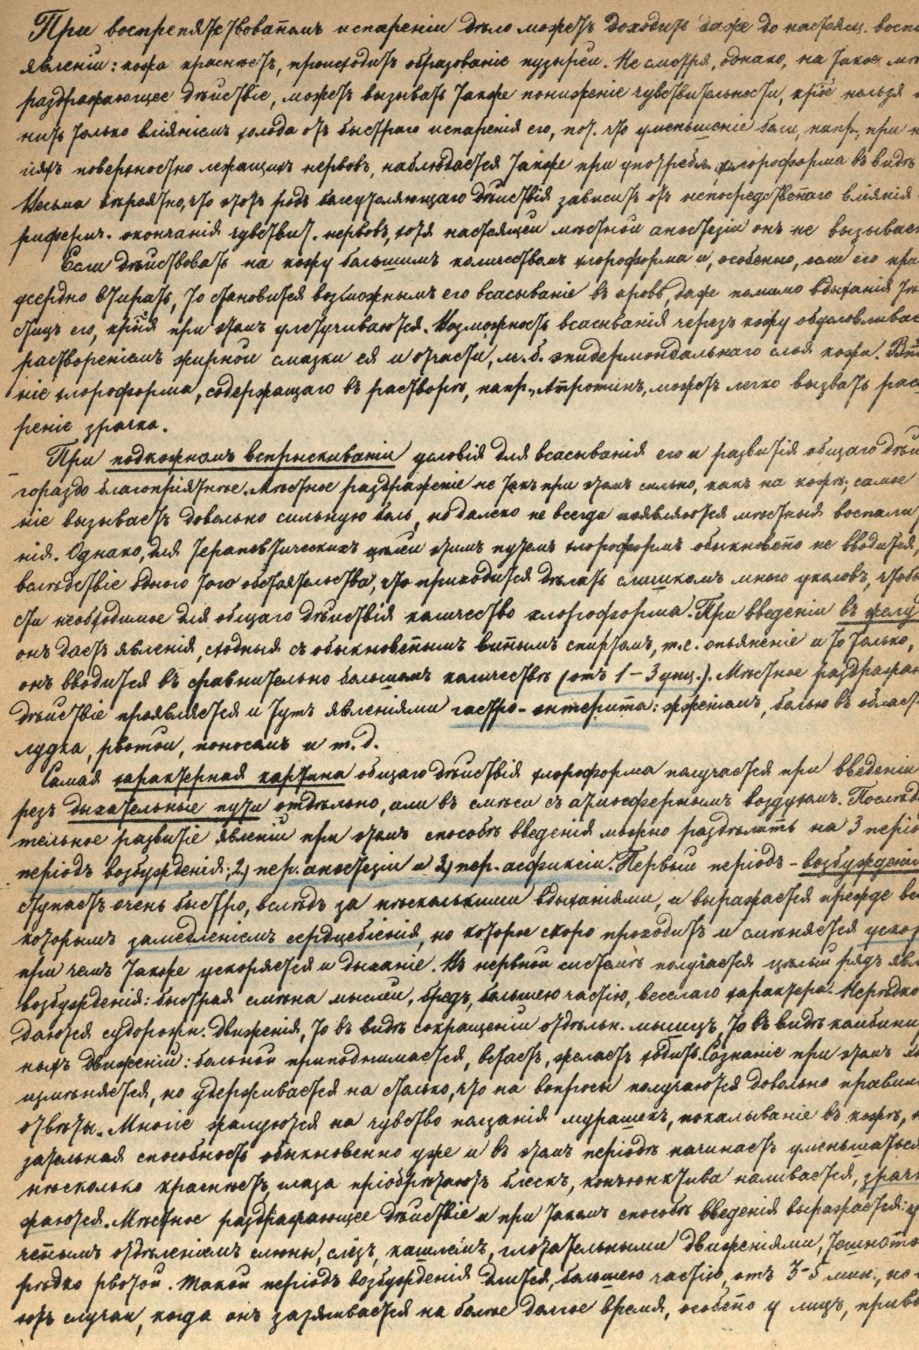 При воспрепятствованномъ испареніи дѣло можетъ доходить даже до настоящ. воспа
явленій: кожа краснѣетъ, происходитъ образованіе пузырей. Не смотря, однако, на такое мѣ
раздражающее дѣйствіе, можетъ вызывать также пониженіе чувствительности, кр̅ое нельзя
нить только вліяніемъ холода отъ быстраго испаренія его, пот. что уменьшеніе боли, напр., при н
іяхъ поверхностно лежащихъ нервовъ, наблюдается также при употребл. хлороформа въ видѣ
Весьма вѣроятно, что этотъ родъ болеутоляющаго дѣйствія зависитъ отъ непосредственнаго вліянія
риферич. окончанія чувствит. нервовъ, хотя настоящей мѣстной анэстезіи онъ не вызывает
Если дѣйствовать на кожу большимъ количествомъ хлороформа и, особенно, если его при
усердно втирать, то становится возможнымъ его всасываніе въ кровь, даже помимо вдыханія
стицъ его, кр̅ыя при этомъ улетучиваются. Возможность всасыванія черезъ кожу обусловливае
раствореніемъ жирной смазки ея и отчасти, м. б. эпидермоидальнаго слоя кожи. Вти
ніе хлороформа, содержащаго въ растворѣ, напр., Атропинъ, можетъ легко вызвать рас
реніе зрачка.
При подкожномъ впрыскиваніи условія для всасыванія его и развитія общаго дѣй
гораздо благопріятнѣе. Мѣстное раздраженіе не такъ при этомъ сильно, какъ на кожѣ; самое
ніе вызываетъ довольно сильную боль, но далеко не всегда появляются мѣстныя воспали
нія. Однако, для терапевтическихъ цѣлей этимъ путемъ хлороформъ обыкновенно не вводится,
вслѣдствіе одного того обстоятельства, что приходится дѣлать слишкомъ много уколовъ, чтобы
сти необходимое для общаго дѣйствія количество хлороформа. При введеніи въ желу
онъ даетъ явленія, сходныя съ обыкновеннымъ виннымъ спиртомъ, т.е. опьяненіе и то только,
онъ вводится въ сравнительно большомъ количествѣ (отъ 1–3 унц.). Мѣстное раздражаю
дѣйствіе проявляется и тутъ явленіями гастро-энтерита: жженіемъ, болью въ област
лудка, рвотой, поносомъ и т.д.
Самая характерная картина общаго дѣйствія хлороформа получается при введеніи
резъ дыхательные пути отдѣльно, или въ смѣси съ атмосфернымъ воздухомъ. Послѣдо
тельное развитіе явленій при этомъ способѣ введенія можно раздѣлить на 3 періо
періодъ возбужденія; 2) пер. анэстезіи и 3) пер. асфиксіи. Первый періодъ – возбужденія
ступаетъ очень быстро, вслѣдъ за нѣсколькими вдыханіями, и выражается прежде все
которымъ замедленіемъ сердцебіенія, но которое скоро проходитъ и смѣняется ускор
при чемъ также ускоряется и дыханіе. Въ нервной системѣ получается цѣлый рядъ явл
возбужденія: быстрая смѣна мыслей, бредъ, большею частію, веселаго характера. Нерѣдко
даются судорожн. движенія, то въ видѣ сокращеній отдѣльн. мышцъ, то въ видѣ комбини
ныхъ движеній: больной приподнимается, встаетъ, желаетъ ходить. Сознаніе при этомъ
измѣняется, но удерживается на столько, что на вопросы получаются довольно правил
отвѣты. Многіе жалуются на чувство ползанія мурашекъ, покалываніе въ кожѣ,
зательная способность обыкновенно уже и въ этомъ періодѣ начинаетъ уменьшаться
нѣсколько краснѣетъ, глаза пріобрѣтаютъ блескъ, конъюнктива наливается, зрачк
жаются. Мѣстное раздражающее дѣйствіе и при такомъ способѣ введенія выражается: у
ченнымъ отдѣленіемъ слюны, слезъ, кашлемъ, глотательными движеніями, тошното
рѣдко рвотой. Такой періодъ возбужденія длится, большею частію, отъ 3-5 мин., но
ютъ случаи, когда онъ затягивается на болѣе долгое время, особенно у лицъ, привы